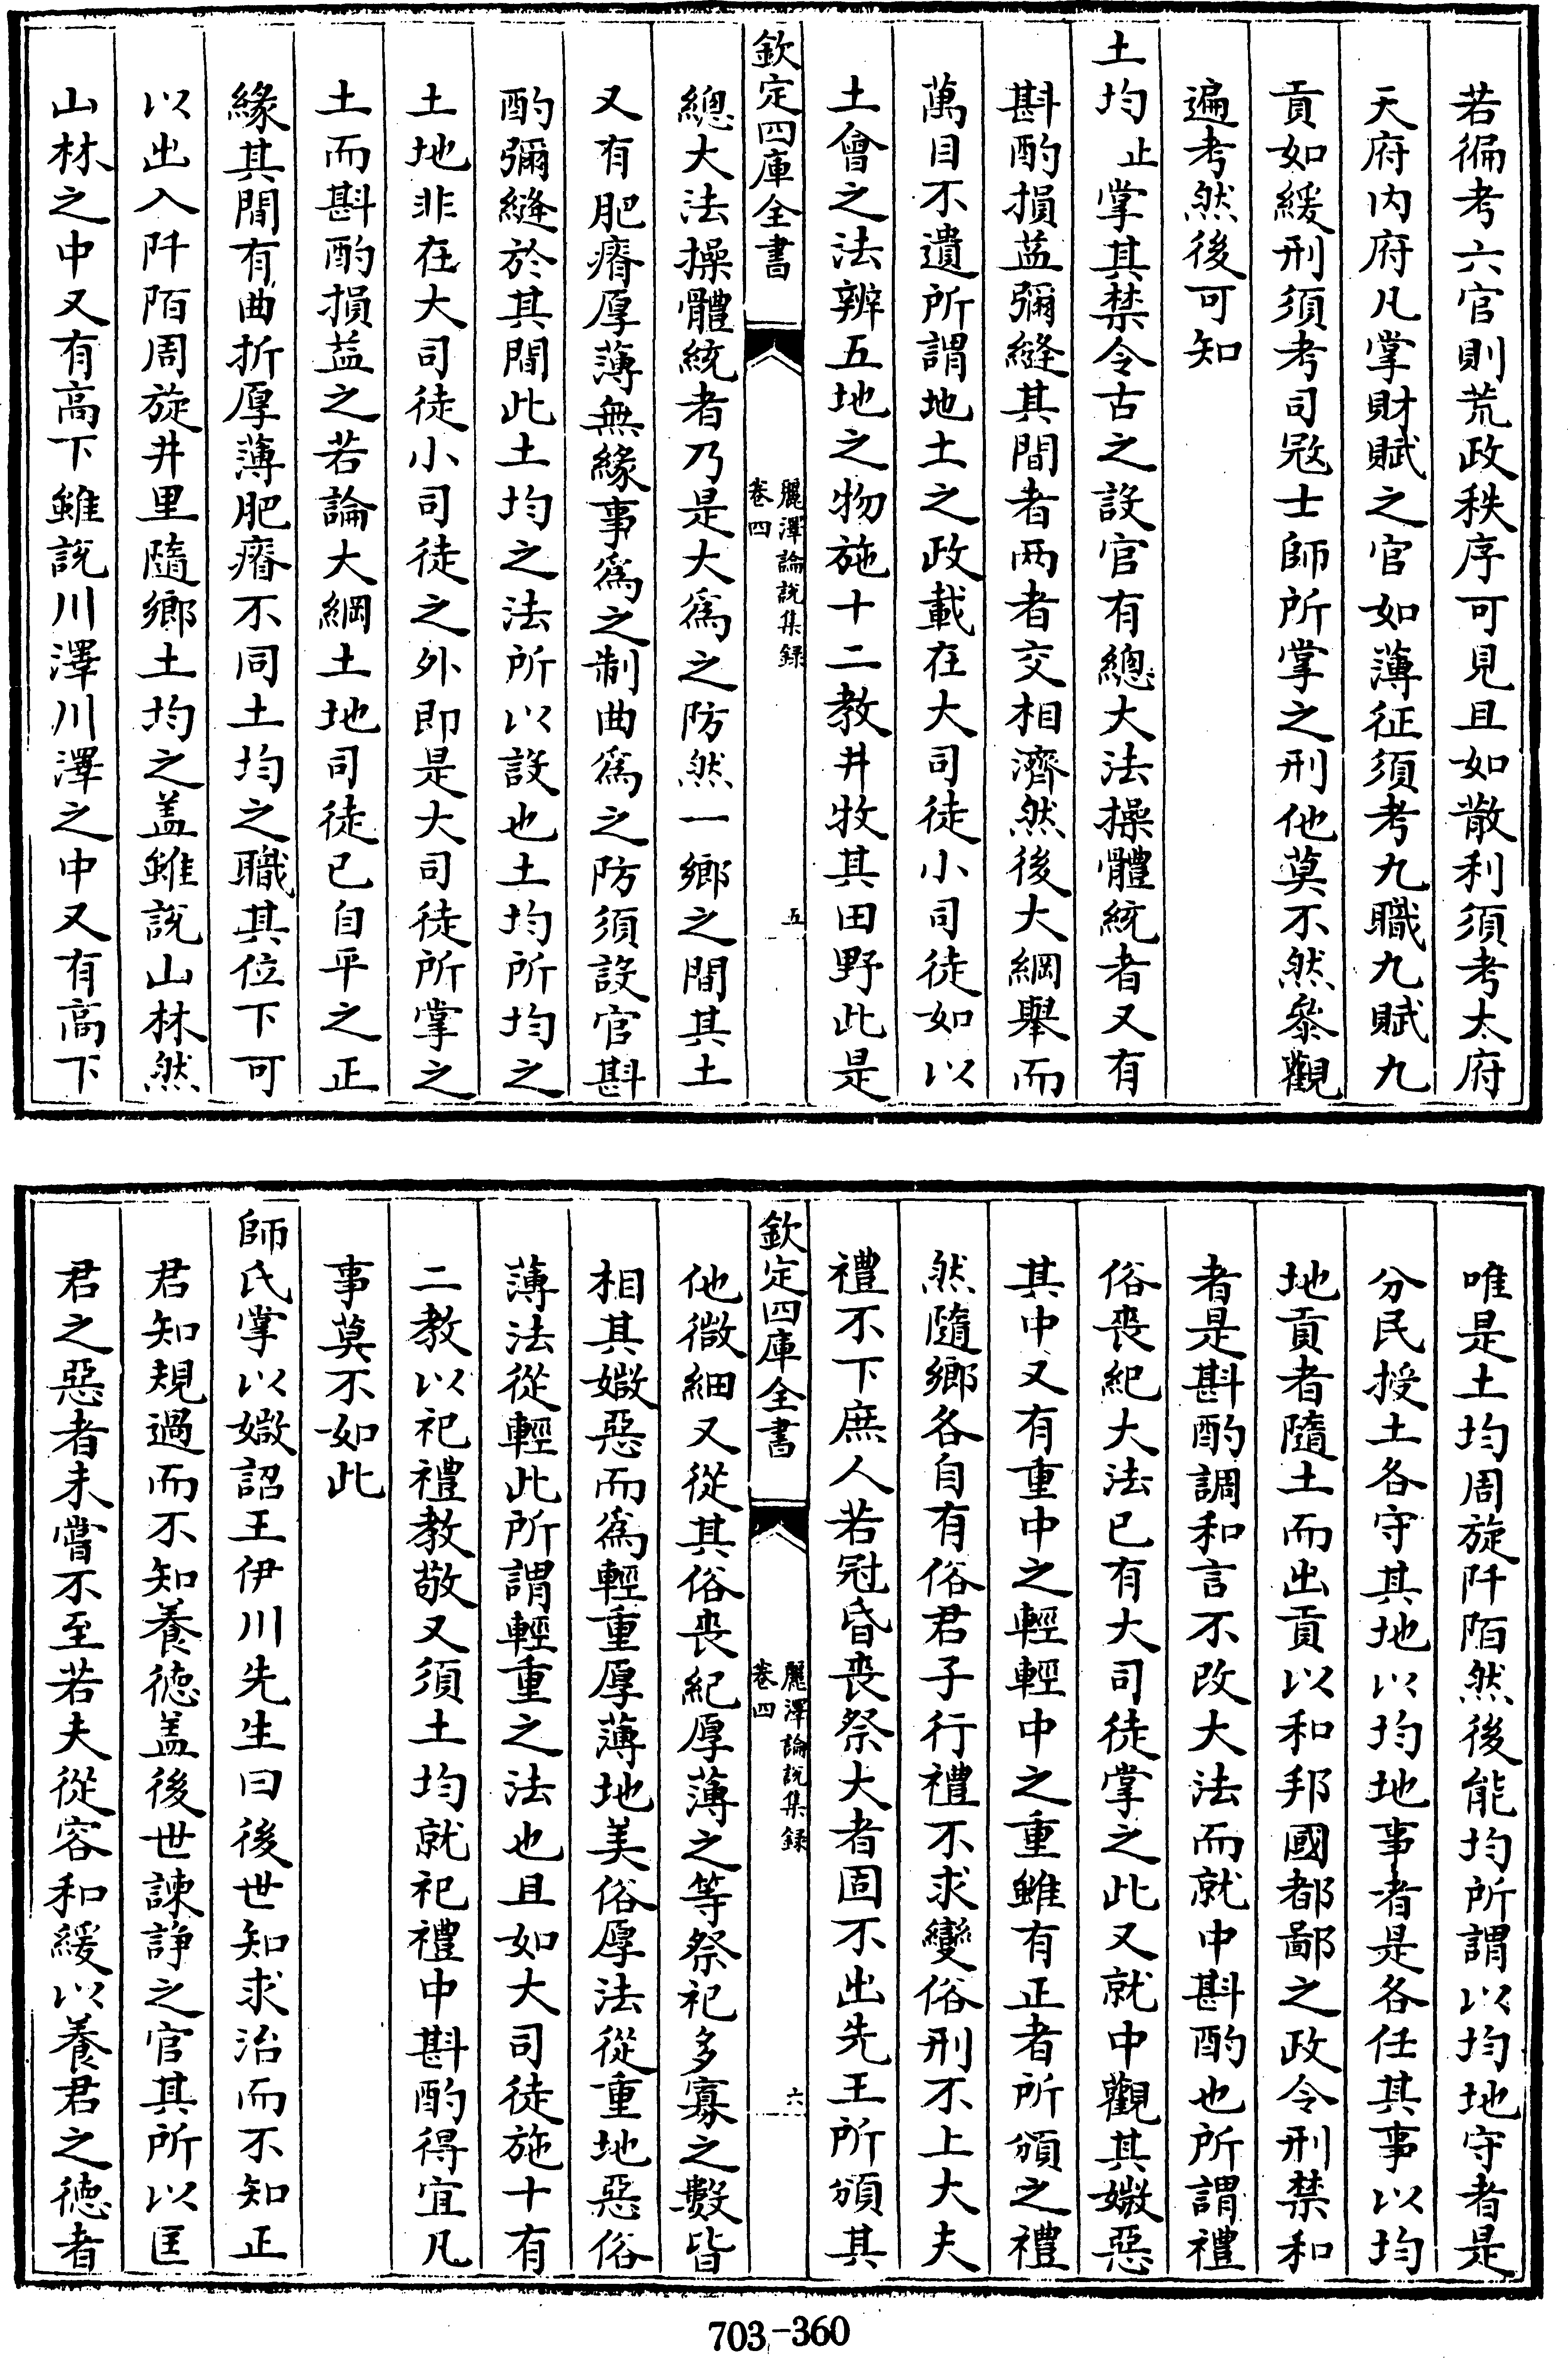 若徧考六官則荒政秩序可見且如散利須考太府
天府内府凡掌財賦之官如薄征須考九職九賦九
貢如緩刑須考司宼士師所掌之刑他莫不然叅觀
遍考然後可知
土均止掌其禁令古之設官有總大法操體統者又有
斟酌損益彌縫其間者两者交相濟然後大綱舉而
萬目不遺所謂地土之政載在大司徒小司徒如以
土會之法辨五地之物施十二教井牧其田野此是
欽定四庫全書
麗澤論說集録
卷四
五
總大法操體統者乃是大為之防然一鄉之間其土
又有肥瘠厚薄無緣事為之制曲為之防須設官斟
酌彌縫於其間此土均之法所以設也土均所均之
土地非在大司徒小司徒之外即是大司徒所掌之
土而斟酌損益之若論大綱土地司徒已自平之正
緣其間有曲折厚薄肥瘠不同土均之職其位下可
以出入阡陌周旋井里隨鄉土均之盖雖說山林然
山林之中又有高下雖説川澤川澤之中又有高下
唯是土均周旋阡陌然後能均所謂以均地守者是
分民授土各守其地以均地事者是各任其事以均
地貢者隨土而出貢以和邦國都鄙之政令刑禁和
者是斟酌調和言不改大法而就中斟酌也所謂禮
俗喪紀大法已有大司徒掌之此又就中觀其媺惡
其中又有重中之輕輕中之重雖有正者所頒之禮
然隨鄉各自有俗君子行禮不求變俗刑不上大夫
禮不下庶人若冠昏喪祭大者固不出先王所頒其
欽定四庫全書
麗澤論說集録
卷四
六
他微細又從其俗喪紀厚薄之等祭祀多寡之數皆
相其媺惡而為輕重厚薄地美俗厚法從重地惡俗
薄法從輕此所謂輕重之法也且如大司徒施十有
二教以祀禮教敬又須土均就祀禮中斟酌得宜凡
事莫不如此
師氏掌以媺詔王伊川先生曰後世知求治而不知正
君知規過而不知養徳盖後世諫諍之官其所以匡
君之惡者未嘗不至若夫從容和緩以養君之徳者
703-360